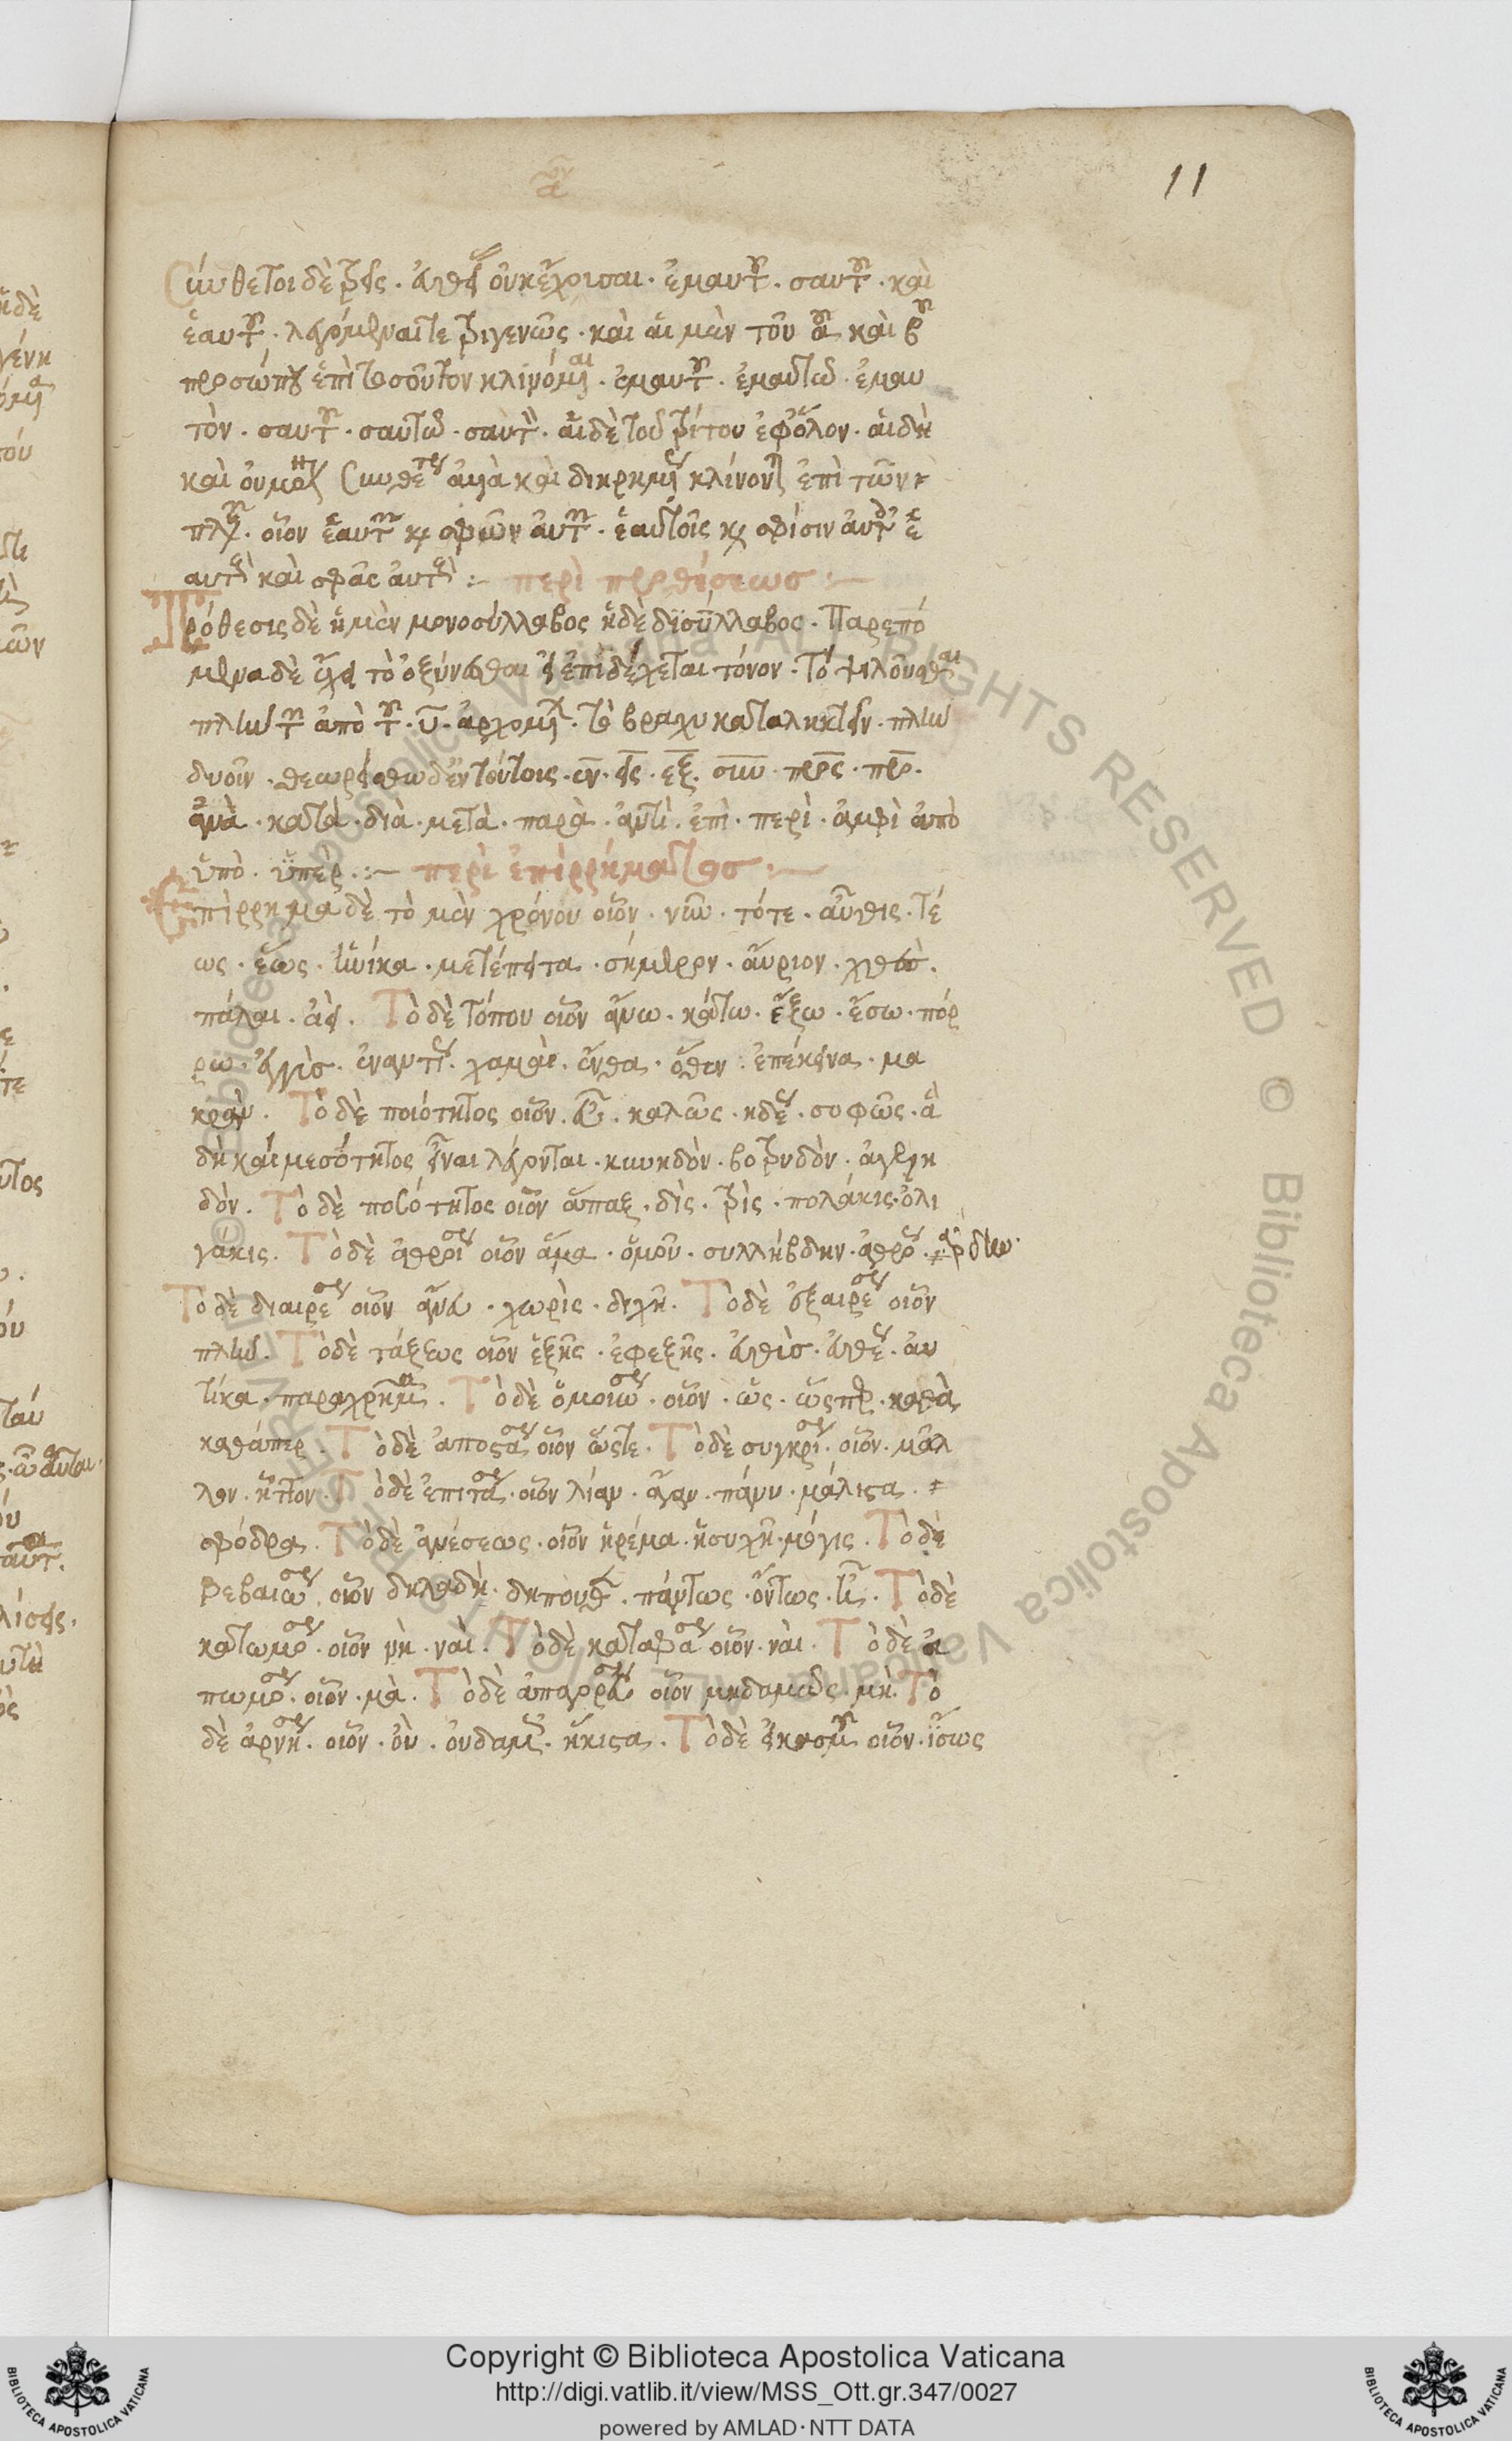 11
Σύνθετοι δὲ τρεῖς · εὐθεῖαν οὐκ ἔχουσαι · ἐμαυτοῦ · σαυτοῦ · καὶ
ἑαυτοῦ · λεγόμεναί τε τριγενῶς · καὶ αἱ μὲν τοῦ α καὶ β
προσώπου ἐπὶ τοσοῦτον κλινόμεναι · ἐμαυτοῦ · ἐμαυτῶ · ἐμαυ
τόν · σαυτοῦ · σαυτῶ · σαυτόν · αἱ δὲ τοῦ τρίτου ἐφόλον · αἱ δὴ
καὶ οὐ μόνον συνθέτως ἀλλὰ καὶ διῃρημένως κλίνονται ἐπὶ τῶν
πληθυντικῶν · οἷον ἑαυτῶν καὶ σφῶν αὐτῶν · ἑαυτοῖς καὶ σφίσιν αὐτοῖς ἑ
αυτοὺς καὶ σφᾶς αὐτούς :– περὶ προθέσεως :–
Πρόθεσις δὲ ἡ μὲν μονοσύλλαβος ἡ δὲ δισύλλαβος · Παρεπό
μενα δὲ ἔχει τὸ ὀξύνεσθαι εἰ ἐπιδέχεται τόνον · Τὸ ψιλοῦσθαι
πλὴν τῶν ἀπὸ τοῦ · υ · ἀρχομένων · τὸ βραχυκαταληκτεῖν · πλὴν
δυοῖν · θεωρείσθω δ' ἐν τούτοις · ἐν · εἰς · ἐξ · σὺν · πρὸς · πρὸ ·
ἀνὰ · κατὰ · διὰ · μετὰ · παρὰ · ἀντὶ · ἐπὶ · περὶ · ἀμφὶ ἀπὸ
ὑπὸ · ὑπὲρ :– περὶ ἐπιρρήματος :–
Ἐπίρρημα δὲ τὸ μὲν χρόνου οἷον · νῦν · τότε · αὖθις · τέ
ως · ἕως · ἡνίκα · μετέπειτα · σήμερον · αὔριον · χθές ·
πάλαι · ἀεί · Τὸ δὲ τόπου οἷον ἄνω · κάτω · ἔξω · ἔσω · πόρ
ρω · ἐγγὺς · ἐναντίως · χαμαί · ἔνθα · ὅθεν · ἐπέκεινα · μα
κράν · Τὸ δὲ ποιότητος οἷον · εὖ · καλῶς · ἡδέως · σοφῶς · ἃ
δὴ καὶ μεσότητος εἶναι λέγονται · κυνηδὸν · βοτρυδὸν · ἀγελη
δόν · Τὸ δὲ ποσότητος οἷον ἅπαξ · δὶς · τρὶς · πολάκις · ὀλι
γάκις · Τὸ δὲ ἀθροίσεως οἷον ἅμα · ὁμοῦ · συλλήβδην · ἀθρόως · ἄρδην ·
Τὸ δὲ διαιρέσεως οἷον ἄνευ · χωρὶς · διχῆ · Τὸ δὲ ἐξαιρέσεως οἷον
πλήν · Τὸ δὲ τάξεως οἷον ἑξῆς · ἐφεξῆς · εὐθὺς · εὐθέως · αὐ
τίκα · παραχρῆμα · Τὸ δὲ ὁμοιώσεως · οἷον · ὡς · ὥσπερ · καθὰ
καθάπερ · Τὸ δὲ ἀποστάσεως οἷον ὥστε · Τὸ δὲ συγκρίσεως · οἷον · μᾶλ
λον · ἧττον · Τὸ δὲ ἐπιτάσεως · οἷον λίαν · ἄγαν · πάνυ · μάλιστα ·
σφόδρα · Τὸ δὲ ἀνέσεως · οἷον ἠρέμα · ἡσυχῆ · μόγις · Τὸ δὲ
βεβαιώσεως · οἷον δηλαδή · δήπουθεν · πάντως · ὄντως · Τὸ δὲ
κατωμόσεως · οἷον νὴ · ναί · Τὸ δὲ καταφάσεως οἷον · ναί · Τὸ δὲ ἀ
πωμόσεως · οἷον · μὰ · Τὸ δὲ ἀπαγορεύσεως οἷον μηδαμῶς · μή · Τὸ
δὲ ἀρνήσεως · οἷον · οὐ · οὐδαμῶς · ἥκιστα · Τὸ δὲ εἰκασμοῦ οἷον · ἴσως
Copyright © Biblioteca Apostolica Vaticana
http://digi.vatlib.it/view/MSS_Ott.gr.347/0027
powered by AMLAD · NTT DATA